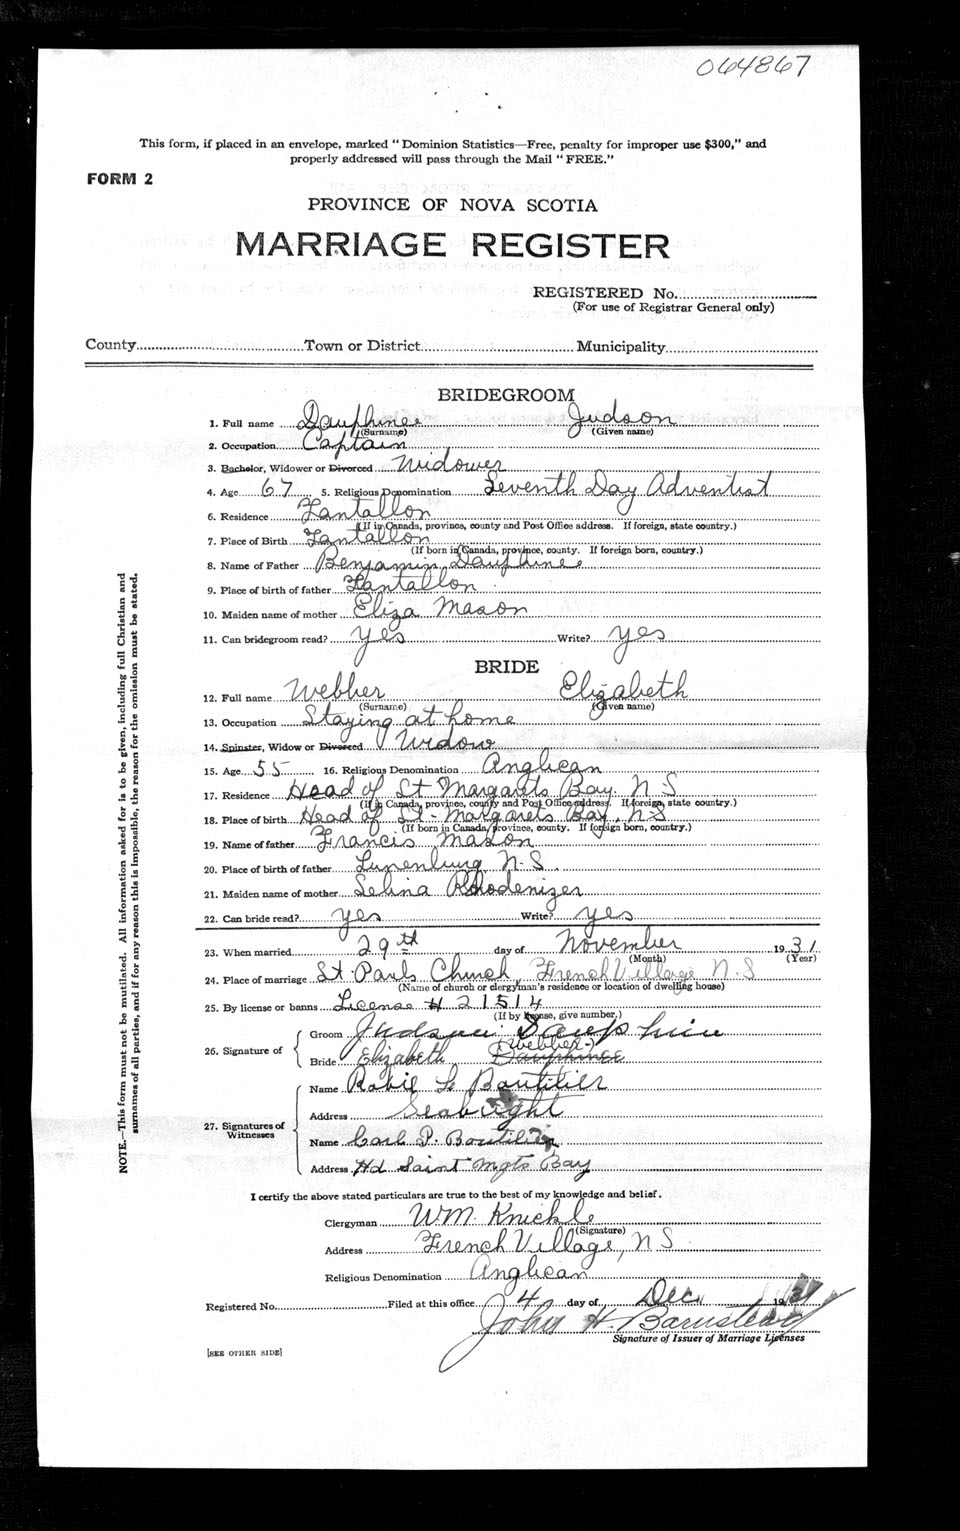 064867
This form, if placed in an envelope, marked "Dominion Statistics—Free, penalty for improper use $300," and
properly addressed will pass through the Mail "FREE."
FORM 2
PROVINCE OF NOVA SCOTIA
MARRIAGE REGISTER
REGISTERED No.
(For use of Registrar General only)
County Town or District Municipality
BRIDEGROOM
1. Full name Dauphinee Judson
(Surname) (Given name)
2. Occupation Captain
3. Bachelor, Widower or Divorced Widower
4. Age 67 5. Religious Denomination Seventh Day Adventist
6. Residence Tantallon
(If in Canada, province, county and Post Office address. If foreign, state country.)
7. Place of Birth Tantallon
(If born in Canada, province, county. If foreign born, country.)
8. Name of Father Benjamin Dauphinee
9. Place of birth of father Tantallon
10. Maiden name of mother Eliza Mason
11. Can bridegroom read? yes Write? yes
BRIDE
12. Full name Webber Elizabeth
(Surname) (Given name)
13. Occupation Staying at home
14. Spinster, Widow or Divorced Widow
15. Age 55 16. Religious Denomination Anglican
17. Residence Head of St Margarets Bay. N S
(If in Canada, province, county and Post Office address. If foreign, state country.)
18. Place of birth Head of St - Margarets Bay, N S
(If born in Canada, province, county. If foreign born, country.)
19. Name of father Francis Mason
20. Place of birth of father Lunenburg N-S.
21. Maiden name of mother Selina Rhodenizer
22. Can bride read? yes Write? yes
23. When married 29th day of November 1931
(Month) (Year)
24. Place of marriage St. Pauls Church, French Village N S
(Name of church or clergyman's residence or location of dwelling house)
25. By license or banns License # 21514
(If by license, give number.)
26. Signature of
Groom Judson Dauphinee
(Webber)
Bride Elizabeth Dauphinee
27. Signatures of Witnesses
Name Robie L Boutilier
Address Seabright
Name Carl P. Boutilier
Address Hd Saint Mgts Bay
I certify the above stated particulars are true to the best of my knowledge and belief.
Clergyman WM. Knickle
(Signature)
Address French Village, N S
Religious Denomination Anglican
Registered No. Filed at this office 4 day of Dec 1931
John H. Barnstead
Signature of Issuer of Marriage Licenses
[SEE OTHER SIDE]
NOTE.—This form must not be mutilated. All information asked for is to be given, including full Christian and
surnames of all parties, and if for any reason this is impossible, the reason for the omission must be stated.